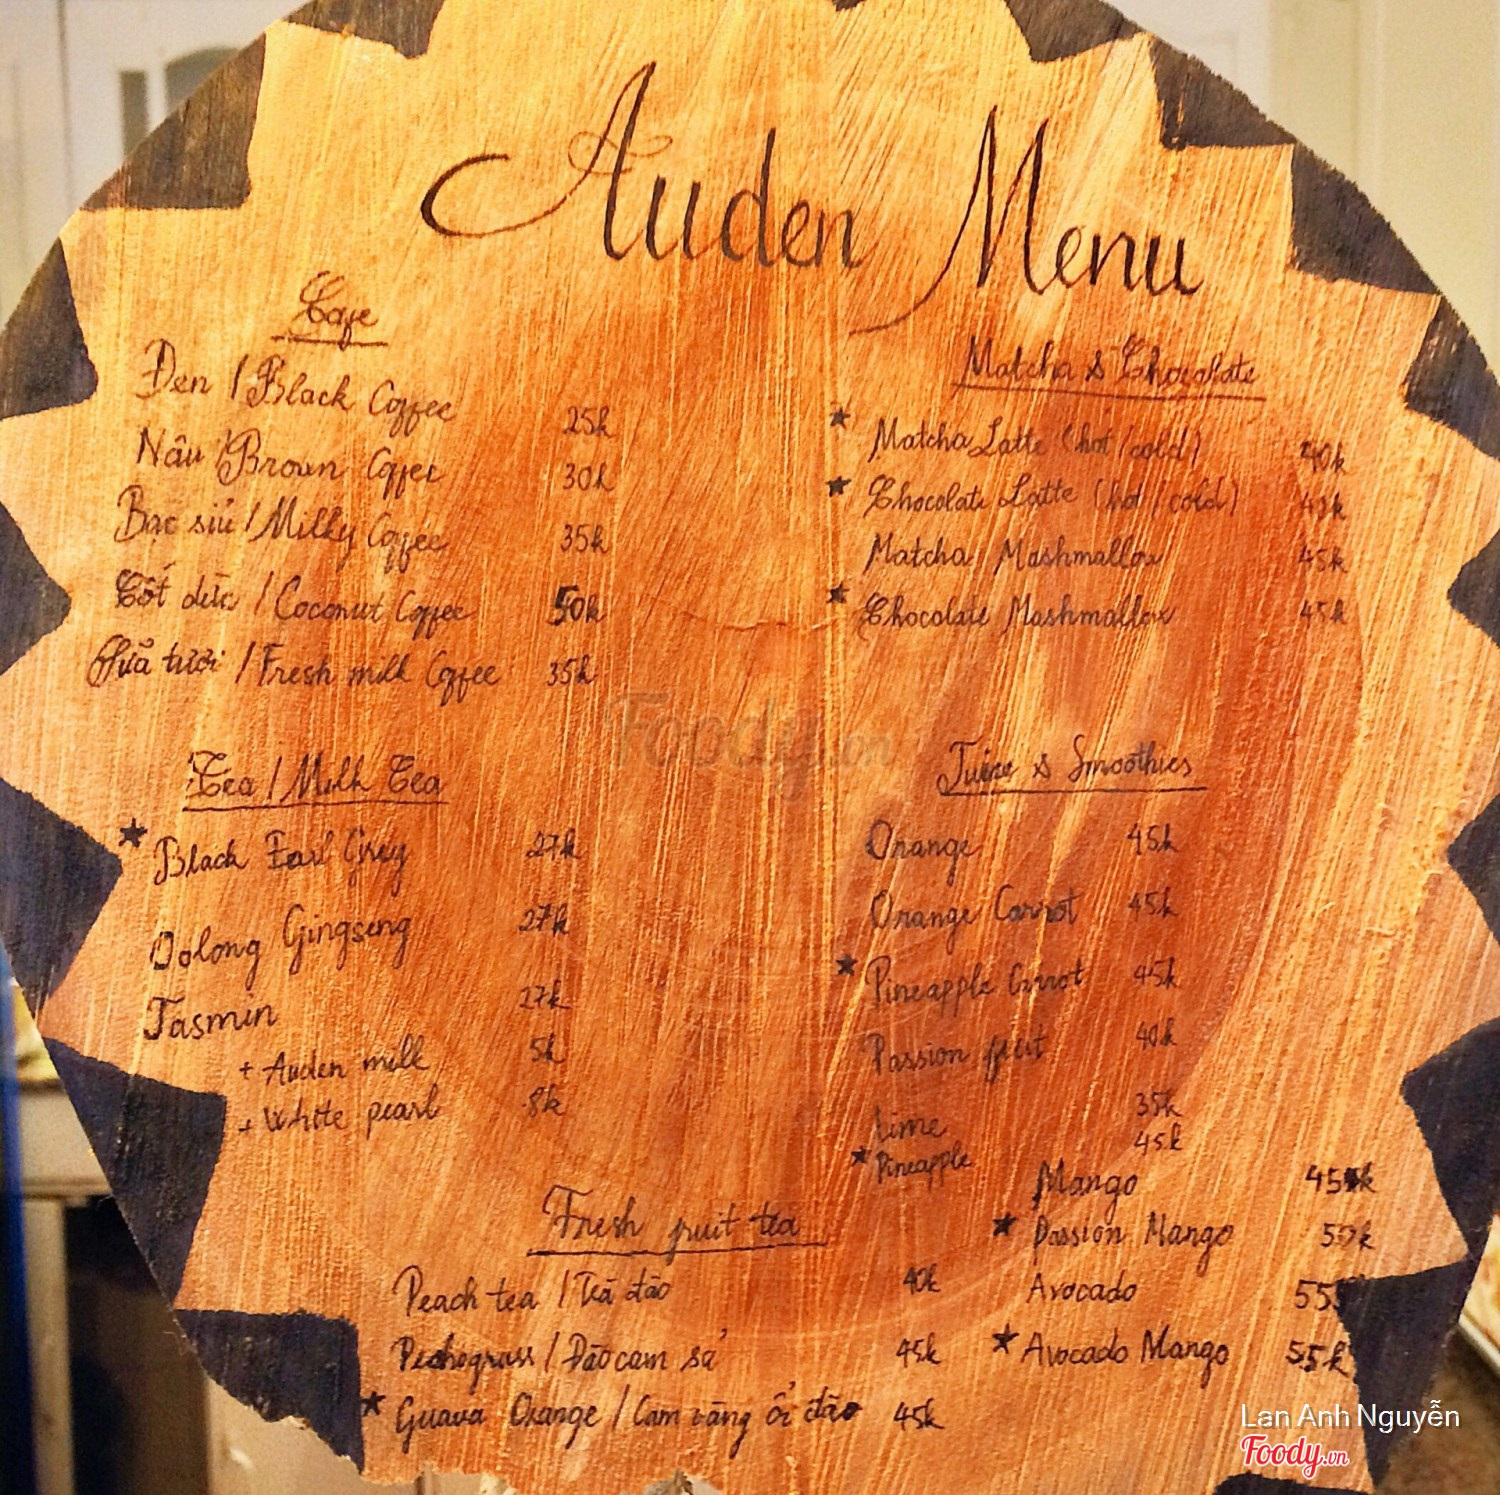 Auden Menu
Cafe
Đen / Black Coffee 25k
Nâu / Brown Coffee 30k
Bạc sỉu / Milky Coffee 35k
Cốt dừa / Coconut Coffee 50k
Sữa tươi / Fresh milk Coffee 35k
Tea / Milk Tea
★ Black Earl Grey 27k
Oolong Gingseng 27k
Jasmin 27k
+ Auden milk 5k
+ White pearl 8k
Matcha & Chocolate
★ Matcha Latte (hot / cold) 40k
★ Chocolate Latte (hot / cold)
Matcha Mashmallow 45k
★ Chocolate Mashmallow 45k
Juice & Smoothies
Orange 45k
Orange Carrot 45k
★ Pineapple Carrot 45k
Passion fruit 40k
Lime 35k
★ Pineapple 45k
Mango 45k
★ Passion Mango 50k
Avocado
★ Avocado Mango 55k
Fresh fruit tea
Peach tea / Trà đào 40k
/ Đào cam sả 45k
★ Guava Orange / Cam vàng ổi đào 45k
Foody.vn
Lan Anh Nguyễn
Foody.vn